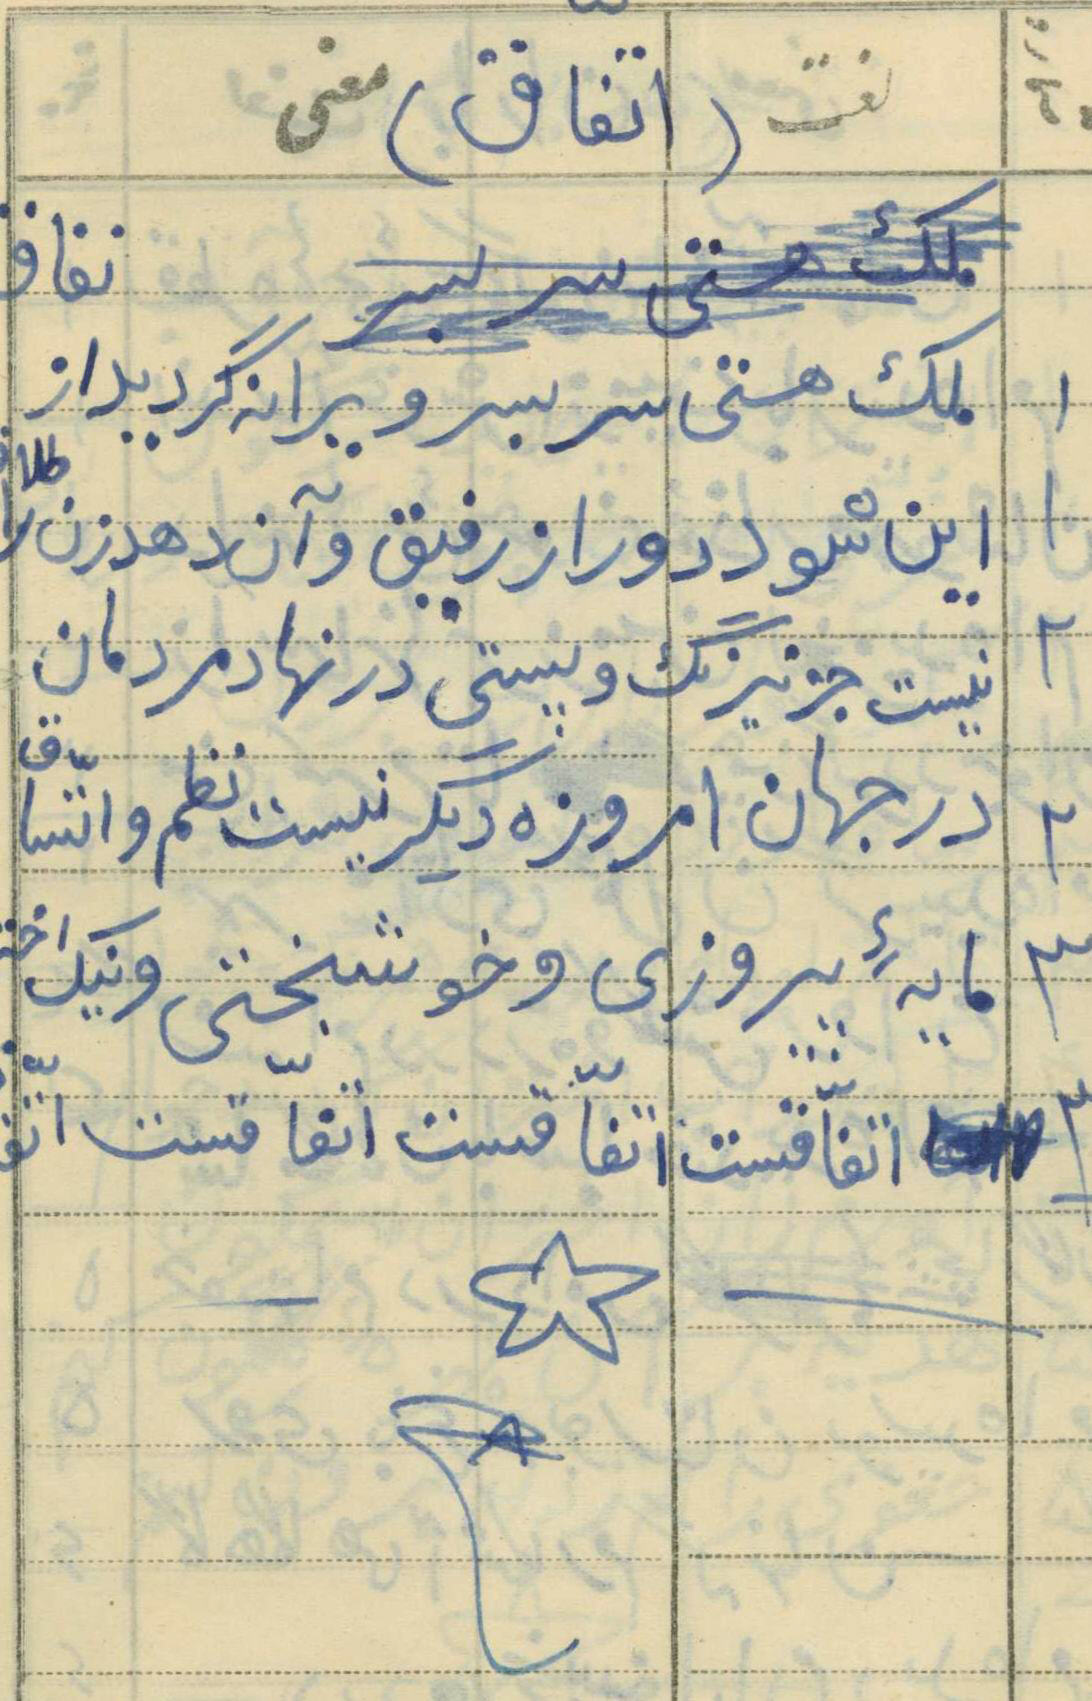 لغت (اتّفاق) معنی
ملک هستی سر بسر
۱ ملک هستی سر بسر ویرانه گردید از نفاق
۱ این شود دور از رفیق و آن دهد زن را طلاق
۲ نیست جز نیرنگ و پستی در نهاد مردمان
۲ در جهان امروزه دیگر نیست نظم و اتّساق
۳ مایهٔ پیروزی و خوشبختی و نیک
۳ اتّفاقست اتّفاقست اتّفاقست